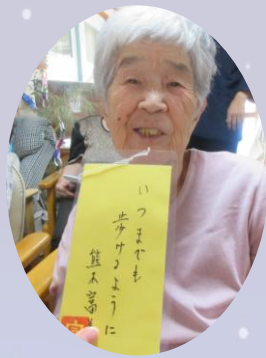 いつまでも
歩けるように
熊木富